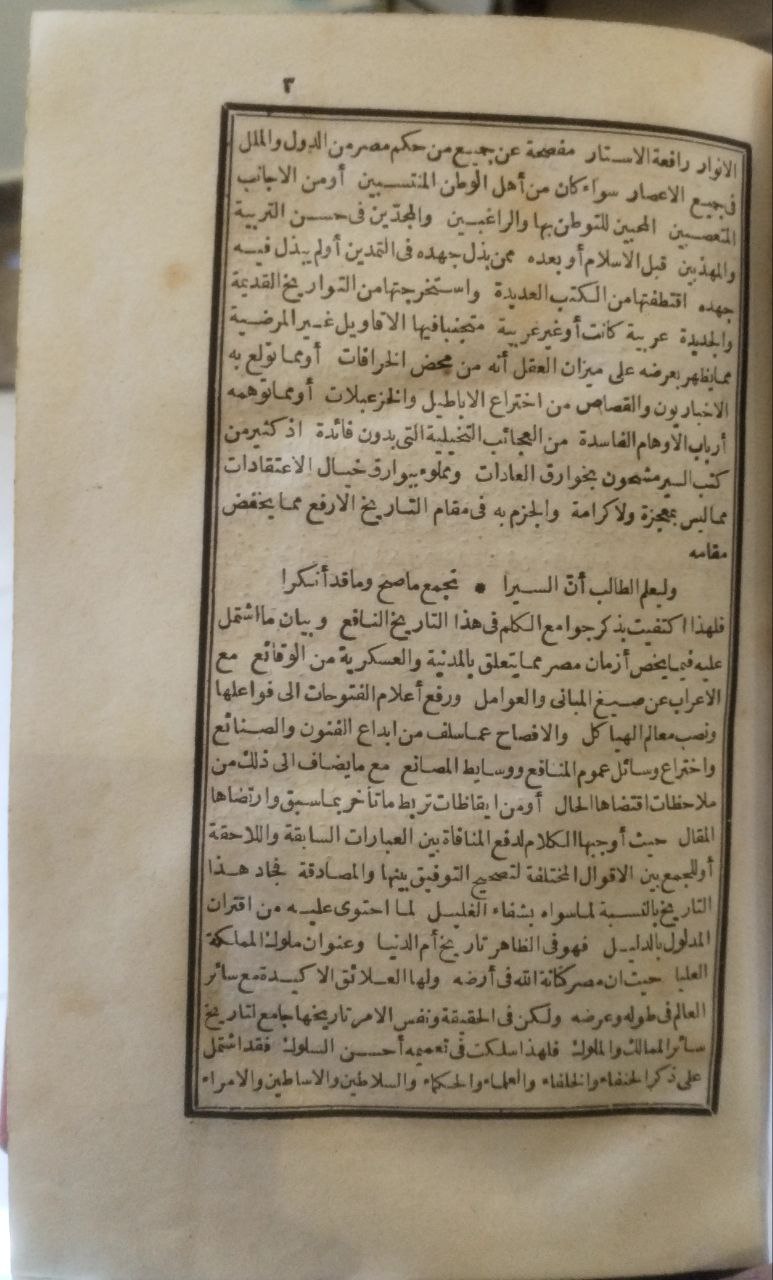 ٣
الانوار رافعة الاستار مفصحة عن جميع من حكم مصر من الدول والملل
فى جميع الاعصار سواء كان من أهل الوطن المنتسبين أو من الاجانب
المتعصبين المحبين للتوطن بها والراغبين والمجدّين فى حسن التربية
والمهذبين قبل الاسلام أو بعده ممن بذل جهده فى التمدين أو لم يبذل فيه
جهده اقتطفتها من الكتب العديدة واستخرجتها من التواريخ القديمة
والجديدة عربية كانت أو غير عربية متجنبا فيها الاقاويل غير المرضية
مما يظهر بعرضه على ميزان العقل أنه من محض الخرافات أو مما تولع به
الاخباريون والقصاص من اختراع الاباطيل والخزعبلات أو مما توهمه
أرباب الاوهام الفاسدة من العجائب التخيلية التى بدون فائدة اذ كثير من
كتب السير مشحون بخوارق العادات ومملوء ببوارق خيال الاعتقادات
مما ليس بمعجزة ولا كرامة والجزم به فى مقام التاريخ الارفع مما يخفض
مقامه
وليعلم الطالب أنّ السيرا * تجمع ما صح وما قد أنكرا
فلهذا اكتفيت بذكر جوامع الكلم فى هذا التاريخ النافع وبيان ما اشتمل
عليه فيما يخص أزمان مصر مما يتعلق بالمدنية والعسكرية من الوقائع مع
الاعراب عن صيغ المبانى والعوامل ورفع أعلام الفتوحات الى فواعلها
ونصب معالم الهياكل والافصاح عما سلف من ابداع الفنون والصنائع
واختراع وسائل عموم المنافع ووسايط المصانع مع ما يضاف الى ذلك من
ملاحظات اقتضاها الحال أو من ايقاظات تربط ما تأخر بما سبق وارتضاها
المقال حيث أوجبها الكلام لدفع المنافاة بين العبارات السابقة واللاحقة
أو للجمع بين الاقوال المختلفة لتصحيح التوفيق بينها والمصادقة فجاد هذا
التاريخ بالنسبة لما سواه بشفاء الغليل لما احتوى عليه من اقتران
المدلول بالدليل فهو فى الظاهر تاريخ أم الدنيا وعنوان ملوك المملكة
العليا حيث ان مصر كنانة الله فى أرضه ولها العلائق الاكيدة مع سائر
العالم فى طوله وعرضه ولكن فى الحقيقة ونفس الامر تاريخها جامع لتاريخ
سائر الممالك والملوك فلهذا سلكت فى تعميمه أحسن السلوك فقد اشتمل
على ذكر الحنفاء والخلفاء والعلماء والحكماء والسلاطين والاساطين والامراء